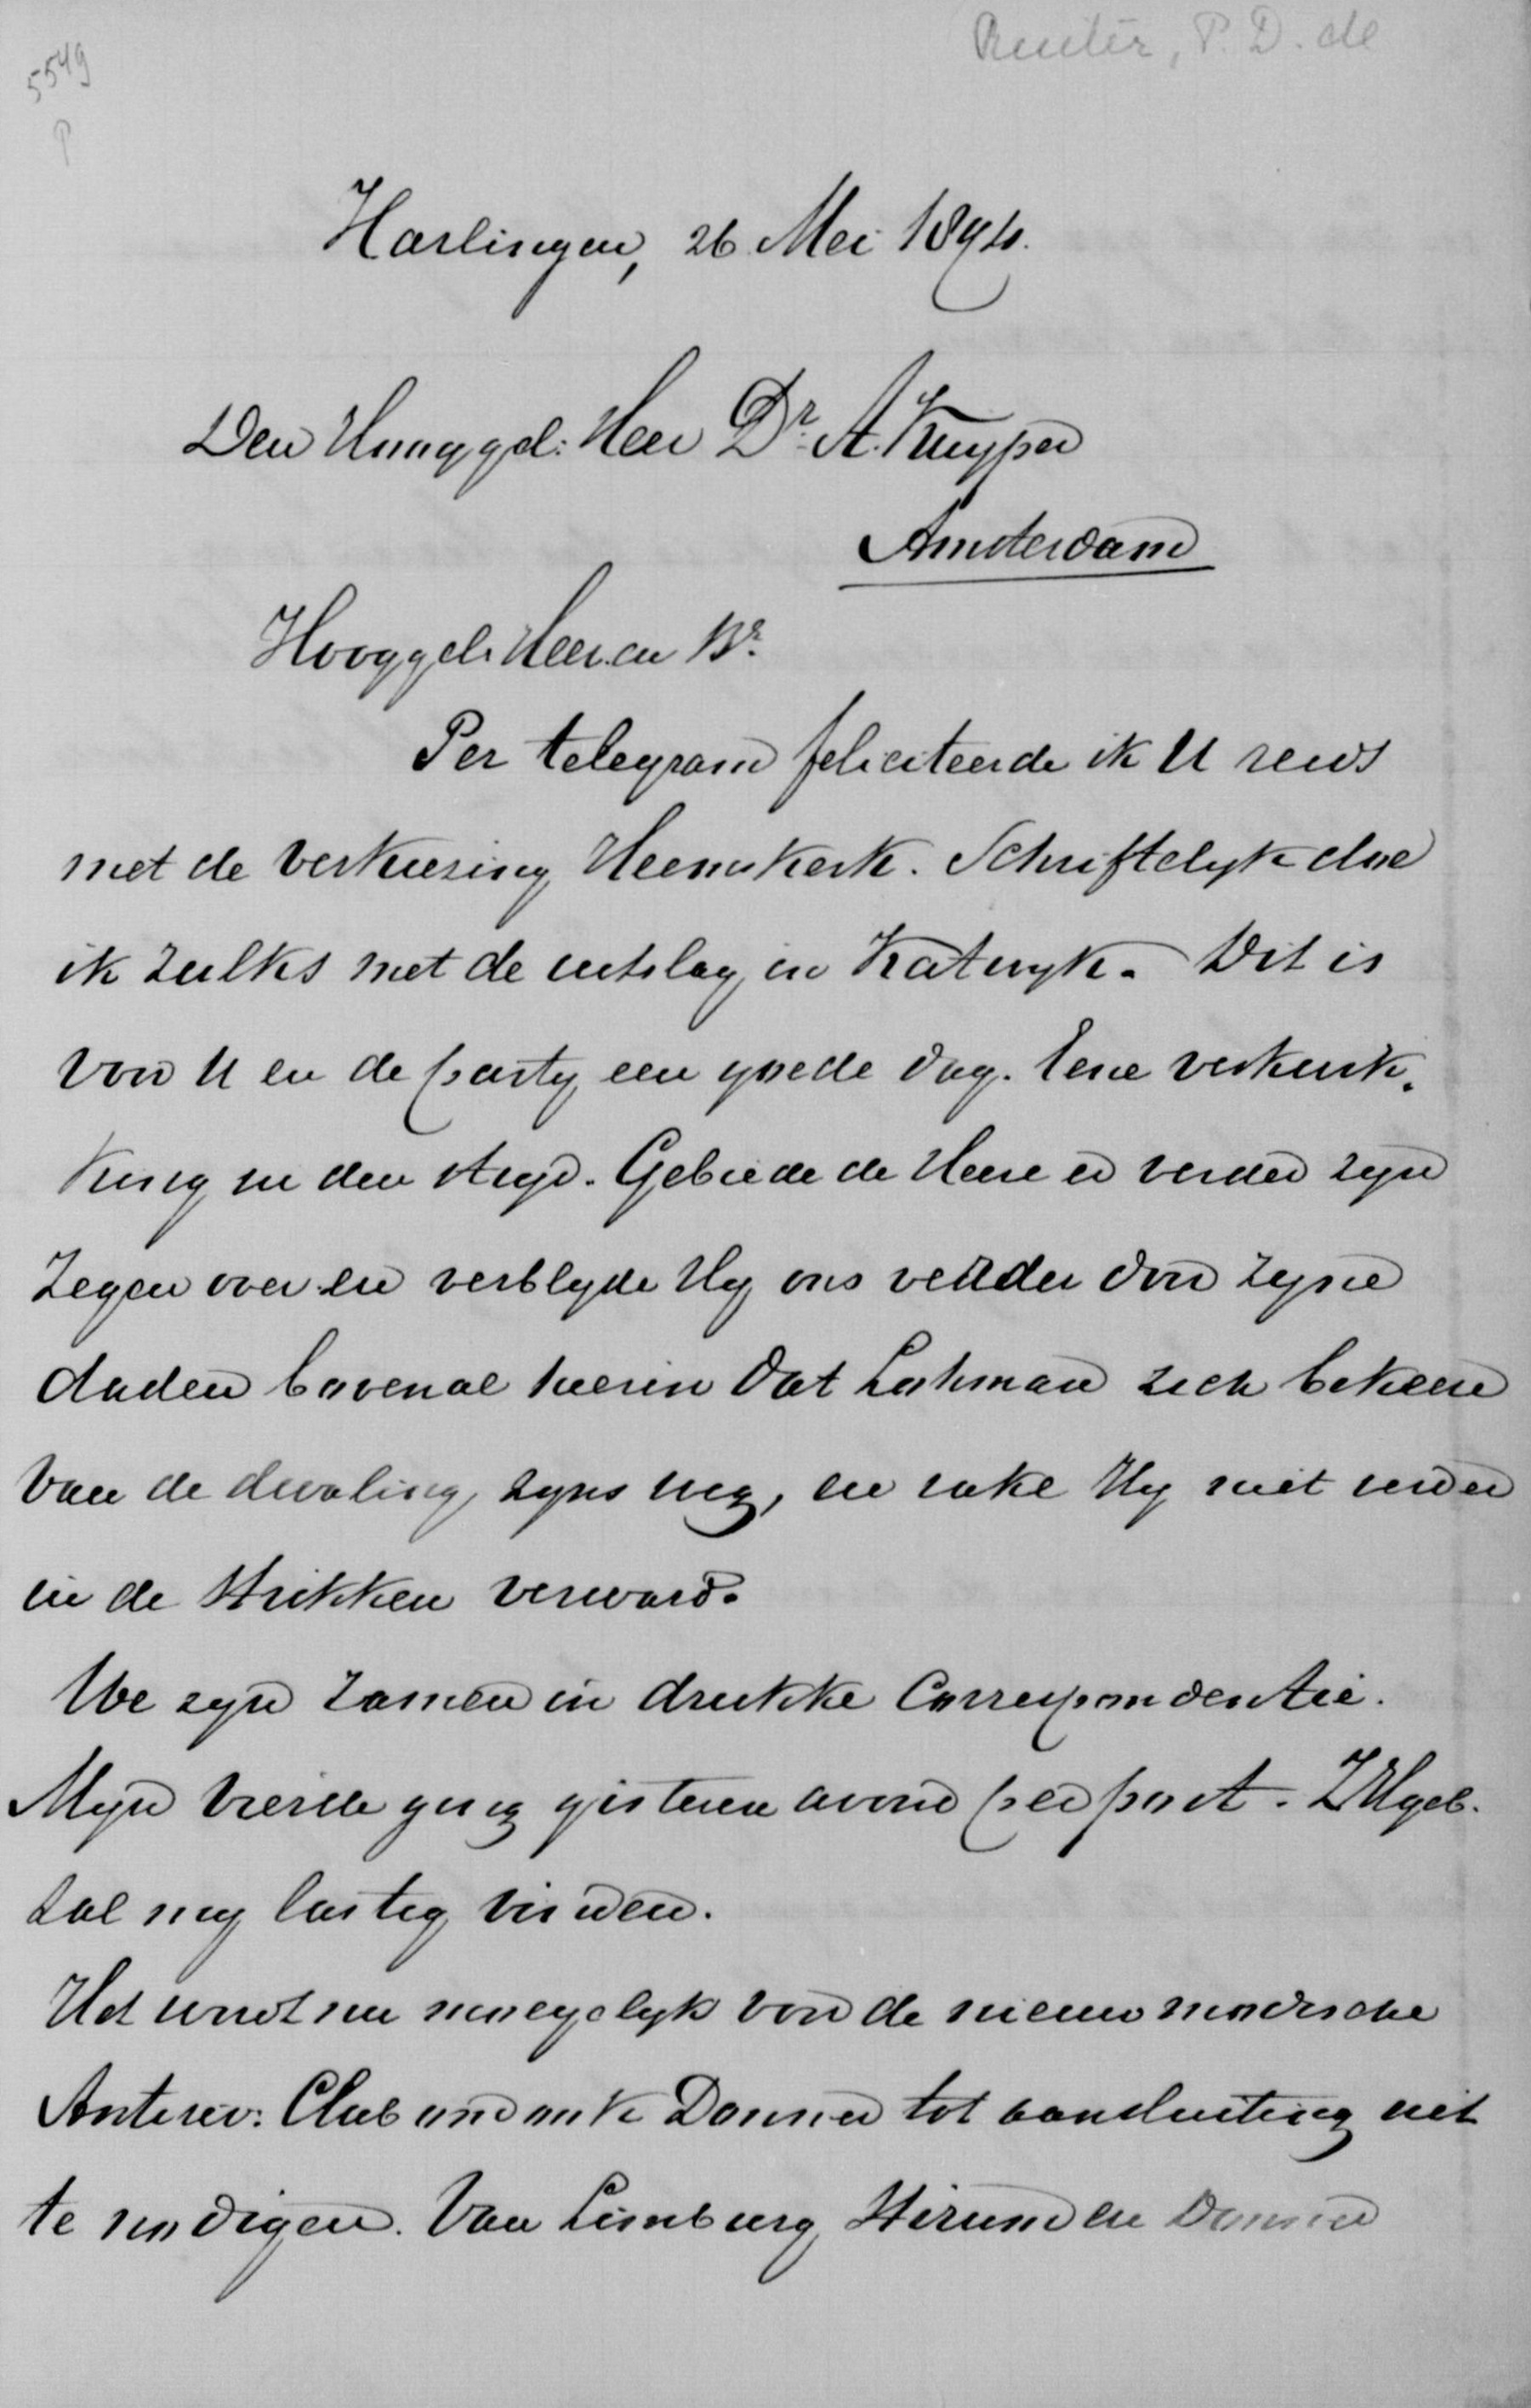 Ruiter, P. D. de
5549
P
Harlingen, 26 Mei 1894.
Den Hooggel: Heer Dr. A. Kuyper
Amsterdam
Hooggel: Heer en Br.
Per telegram feliciteerde ik U reeds
met de verkiezing Heemskerk. Schriftelyk doe
ik zulks met de uitslag in Katwyk. Dit is
voor U en de party een goede dag. Eene verkwik-
king in den stryd. Gebiede de Heere er verder zyn
zegen over en verblyde Hy ons verder door zyne
daden bovenal hierin dat Lohman zich bekeere
van de dwaling zyns weg, en rake Hy niet verder
in de strikken verward.
We zyn zamen in drukke Correspondentie.
Myn vierde ging gisteren avond per post. ZHgel.
zal my lastig vinden.
Het wordt nu moeyelyk voor de nieuwmodische
Antirev: Club ondank Donner tot aansluiting uit
te noodigen. Van Limburg Stirum en Donner